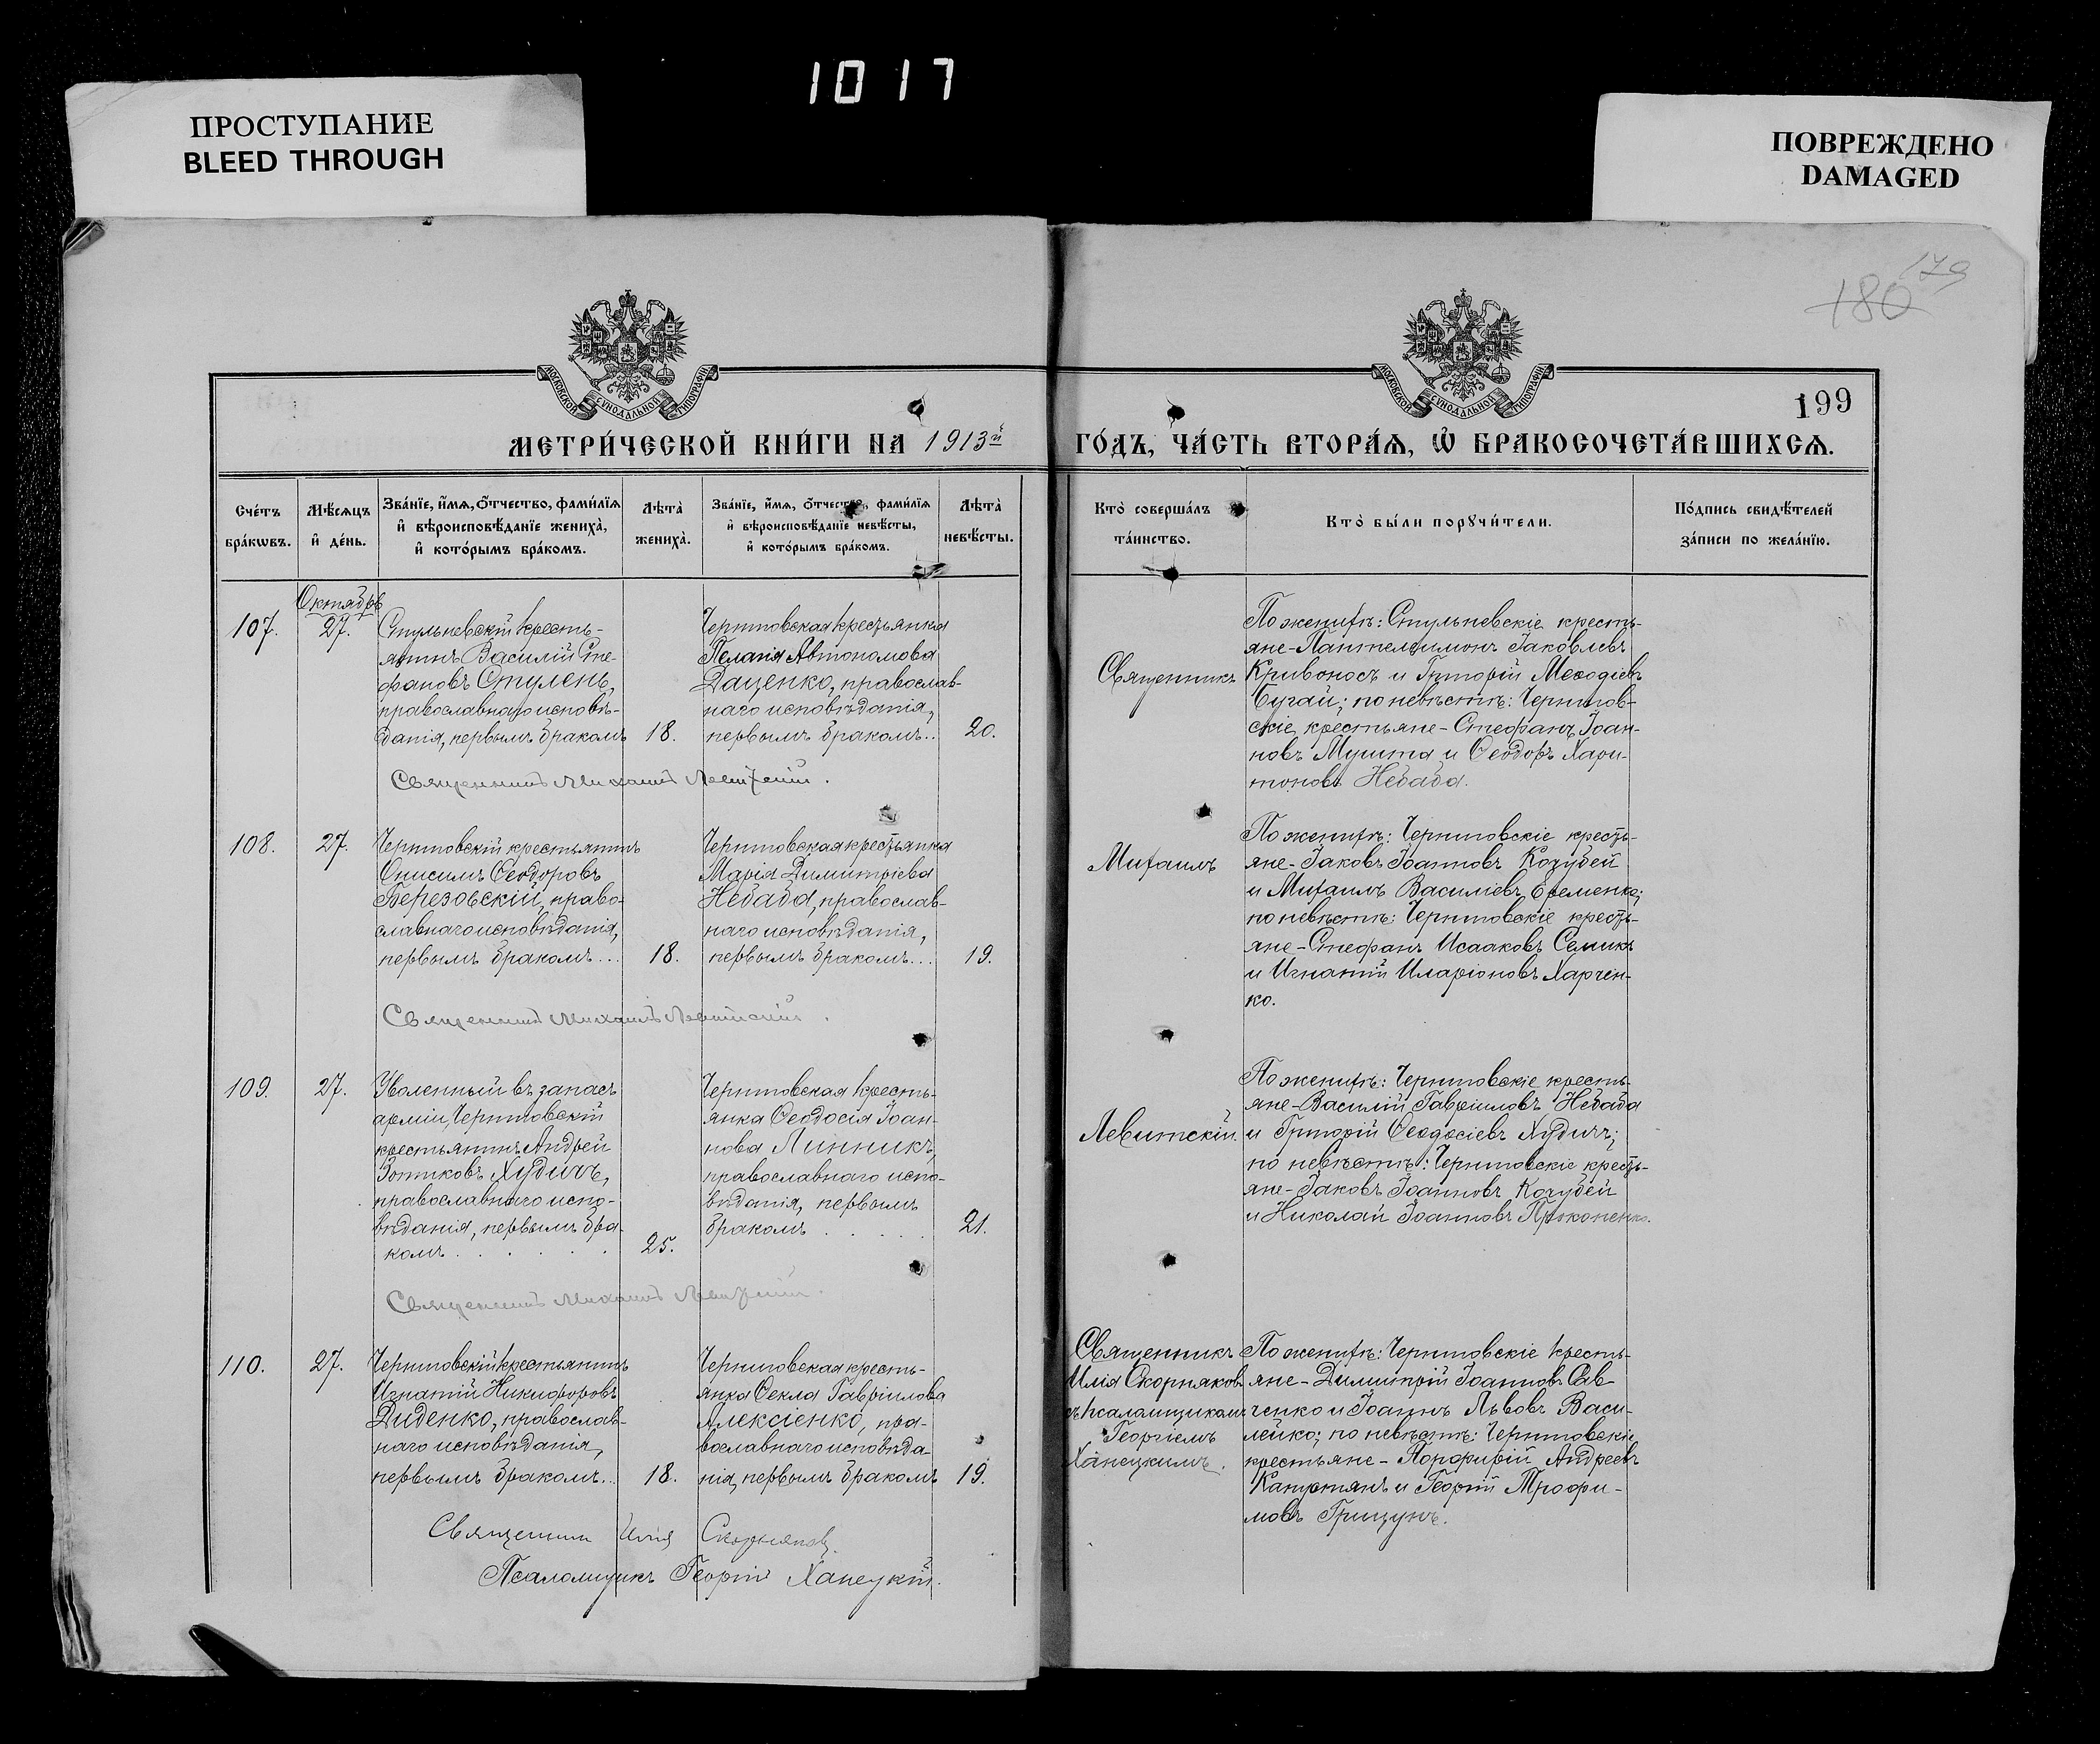 1017
ПРОСТУПАНИЕ
BLEED THROUGH
ПОВРЕЖДЕНО
DAMAGED
179
180
199
МОСКОВСКОЙ СѴНОДАЛЬНОЙ ТИПОГРАФІИ
МОСКОВСКОЙ СѴНОДАЛЬНОЙ ТИПОГРАФІИ
МЕТРИ́ЧЕСКОЙ КНИ́ГИ НА 1913й
ГО́ДЪ, ЧА́СТЬ ВТОРА́Ѧ, Ѡ҆ БРАКОСОЧЕТА́ВШИХСѦ.
Сче́тъ
бра́кѡвъ.
Мѣ́сѧцъ
и҆ де́нь.
Зва́нїе, и҆́мѧ, ѻ҆́тчество, фами́лїѧ
и҆ вѣроисповѣ́данїе жениха̀,
и҆ кото́рымъ бра́комъ.
Лѣта̀
жениха̀.
Зва́нїе, и҆́мѧ, ѻ҆́тчество, фами́лїѧ
и҆ вѣроисповѣ́данїе невѣ́сты,
и҆ кото́рымъ бра́комъ.
Лѣта̀
невѣ́сты.
Кто̀ соверша́лъ
та́инство.
Кто̀ бы́ли порꙋчи́тели.
По́дпись свидѣ́телей
за́писи по жела́нїю.
Октябрь
107.
27.
Стульневскій кресть-
янинъ Василій Сте-
фановъ Стулень,
православнаго исповѣ-
данія, первымъ бракомъ
18.
Черниговская крестьянка
Пелагія Автономова
Даценко, православ-
наго исповѣданія,
первымъ бракомъ..
20.
Священникъ
По женихѣ: Стульневскіе кресть-
яне - Пантелеимонъ Іаковлевъ
Кривоносъ и Григорій Меѳодіевъ
Бугай; по невѣстѣ: Чернигов-
скіе крестьяне - Стефанъ Іоан-
новъ Мушта и Ѳеодоръ Хари-
тоновъ Небаба.
Священникъ Михаилъ Левитскій.
108.
27.
Черниговскій крестьянинъ
Онисимъ Ѳеодоровъ
Березовскій, право-
славнаго исповѣданія,
первымъ бракомъ...
18.
Черниговская крестьянка
Марія Димитріева
Небаба, православ-
наго исповѣданія,
первымъ бракомъ...
19.
Михаилъ
По женихѣ: Черниговскіе кресть-
яне - Іаковъ Іоанновъ Кочубей
и Михаилъ Василіевъ Еременко;
по невѣстѣ: Черниговскіе кресть-
яне - Стефанъ Исааковъ Семикъ
и Игнатій Иларіоновъ Харчен-
ко.
Священникъ Михаилъ Левитскій.
109.
27.
Уволенный въ запасъ
арміи, Черниговскій
крестьянинъ Андрей
Зотиковъ Худичъ,
православнаго испо-
вѣданія, первымъ бра-
комъ . . . . . .
25.
Черниговская кресть-
янка Ѳеодосія Іоан-
нова Линникъ,
православнаго испо-
вѣданія, первымъ
бракомъ . . . . .
21.
Левитскій.
По женихѣ: Черниговскіе кресть-
яне - Василій Гавріиловъ Небаба
и Григорій Ѳеодосіевъ Худичъ;
по невѣстѣ: Черниговскіе кресть-
яне - Іаковъ Іоанновъ Кочубей
и Николай Іоанновъ Прокопенко.
Священникъ Михаилъ Левитскій.
110.
27.
Черниговскій крестьянинъ
Игнатій Никифоровъ
Диденко, православ-
наго исповѣданія,
первымъ бракомъ..
18.
Черниговская кресть-
янка Ѳекла Гавріилова
Алексіенко, пра-
вославнаго исповѣда-
нія, первымъ бракомъ
19.
Священникъ
Илія Скорняковъ
съ псаломщикомъ
Георгіемъ
Ханецкимъ.
По женихѣ: Черниговскіе кресть-
яне - Димитрій Іоанновъ Сав-
ченко и Іоаннъ Львовъ Васи-
лейко; по невѣстѣ: Черниговскіе
крестьяне - Порфирій Андреевъ
Капустянъ и Георгій Трофи-
мовъ Грищунъ.
Священникъ Илія Скорняковъ.
Псаломщикъ Георгій Ханецкій.